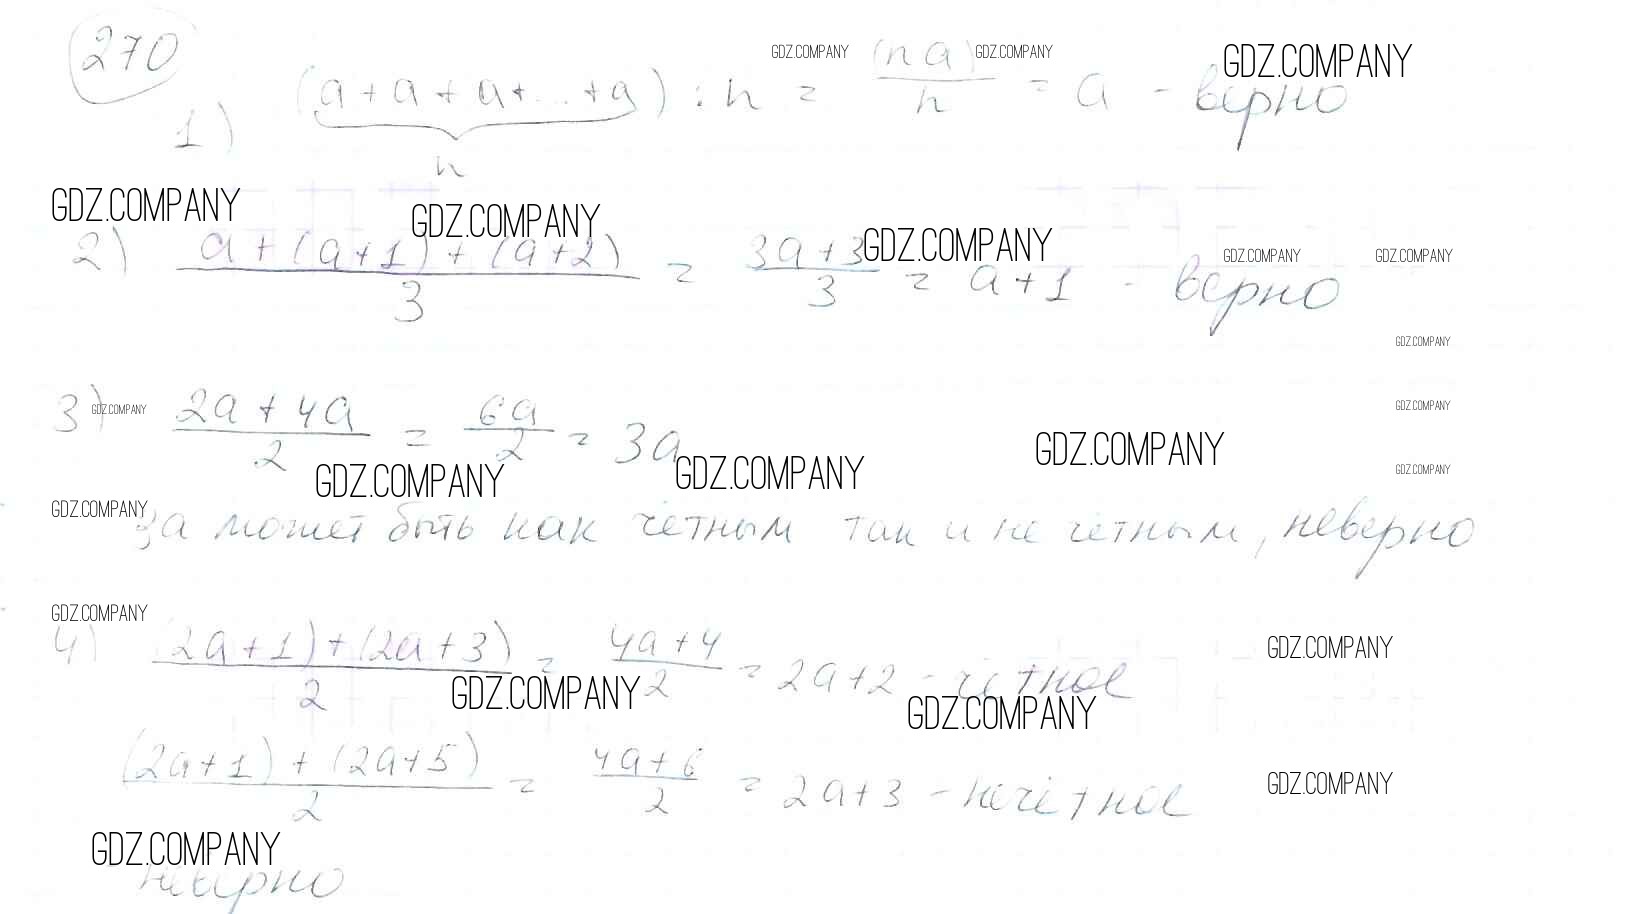 270
GDZ.COMPANY GDZ.COMPANY GDZ.COMPANY
1) (a + a + a + ... + a) : n = (na)/n = a - верно
n
GDZ.COMPANY GDZ.COMPANY GDZ.COMPANY GDZ.COMPANY GDZ.COMPANY
2) (a + (a+1) + (a+2))/3 = (3a+3)/3 = a+1 - верно
GDZ.COMPANY
GDZ.COMPANY GDZ.COMPANY
3) (2a + 4a)/2 = 6a/2 = 3a
GDZ.COMPANY GDZ.COMPANY GDZ.COMPANY GDZ.COMPANY
GDZ.COMPANY
3a может быть как чётным так и не чётным, неверно
GDZ.COMPANY
4) ((2a+1)+(2a+3))/2 = (4a+4)/2 = 2a+2 - чётное
GDZ.COMPANY GDZ.COMPANY GDZ.COMPANY
((2a+1) + (2a+5))/2 = (4a+6)/2 = 2a+3 - нечётное
GDZ.COMPANY
GDZ.COMPANY
неверно